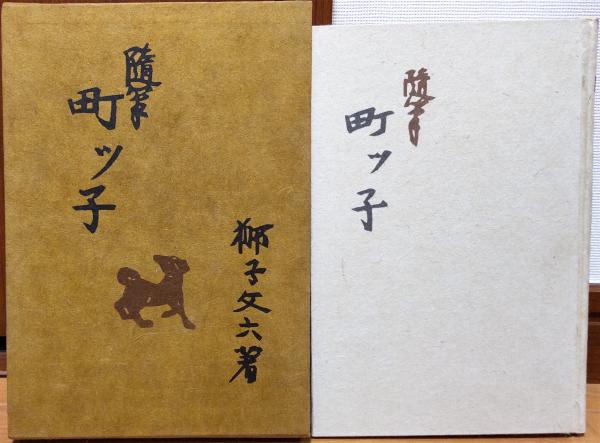 隨筆
町ッ子
獅子文六著
隨筆
町ッ子